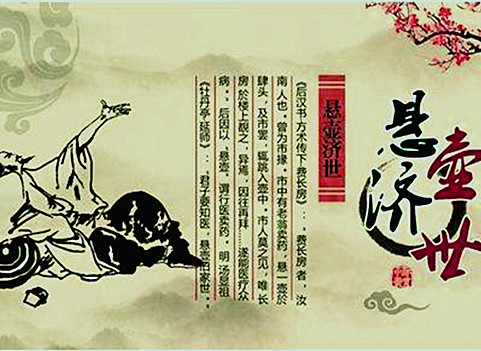 悬壶济世
悬壶济世
《后汉书·方术传下·费长房》:“费长房者,汝
南人也。曾为市掾。市中有老翁卖药,悬一壶於
肆头,及市罢,辄跳入壶中,市人莫之见,唯长
房於楼上覩之,异焉,因往再拜……遂能医疗众
病。”后因以“悬壶”谓行医卖药。明 汤显祖
《牡丹亭·延师》:“君子要知医,悬壶旧家世。”